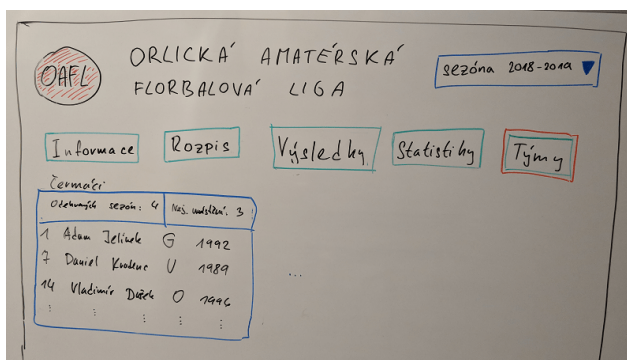 OAFL
ORLICKÁ AMATÉRSKÁ
FLORBALOVÁ LIGA
sezóna 2018-2019
Informace
Rozpis
Výsledky
Statistiky
Týmy
Čermáci
Odehraných sezón: 4
Nej. umístění: 3
1 Adam Jelínek G 1992
7 Daniel U 1989
14 Vladimír O 1996
...